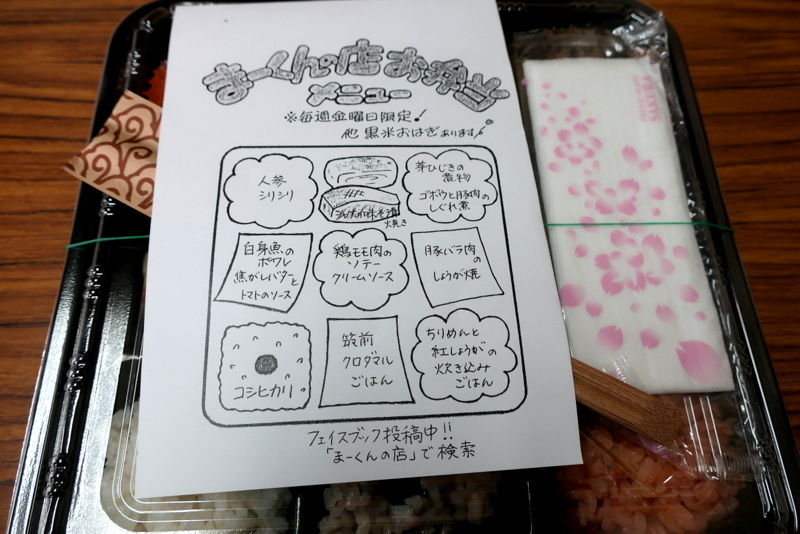 まーくんの店お弁当
メニュー
※毎週金曜日限定!
他 黒米おはぎあります!
人参
シリシリ
焼き
芽ひじきの
煮物
ゴボウと豚肉の
しぐれ煮
白身魚の
ポワレ
焦がしバターと
トマトのソース
鶏モモ肉の
ソテー
クリームソース
豚バラ肉
の
しょうが焼
コシヒカリ
筑前
クロダマル
ごはん
ちりめんと
紅しょうがの
炊き込み
ごはん
フェイスブック投稿中!!
「まーくんの店」で検索